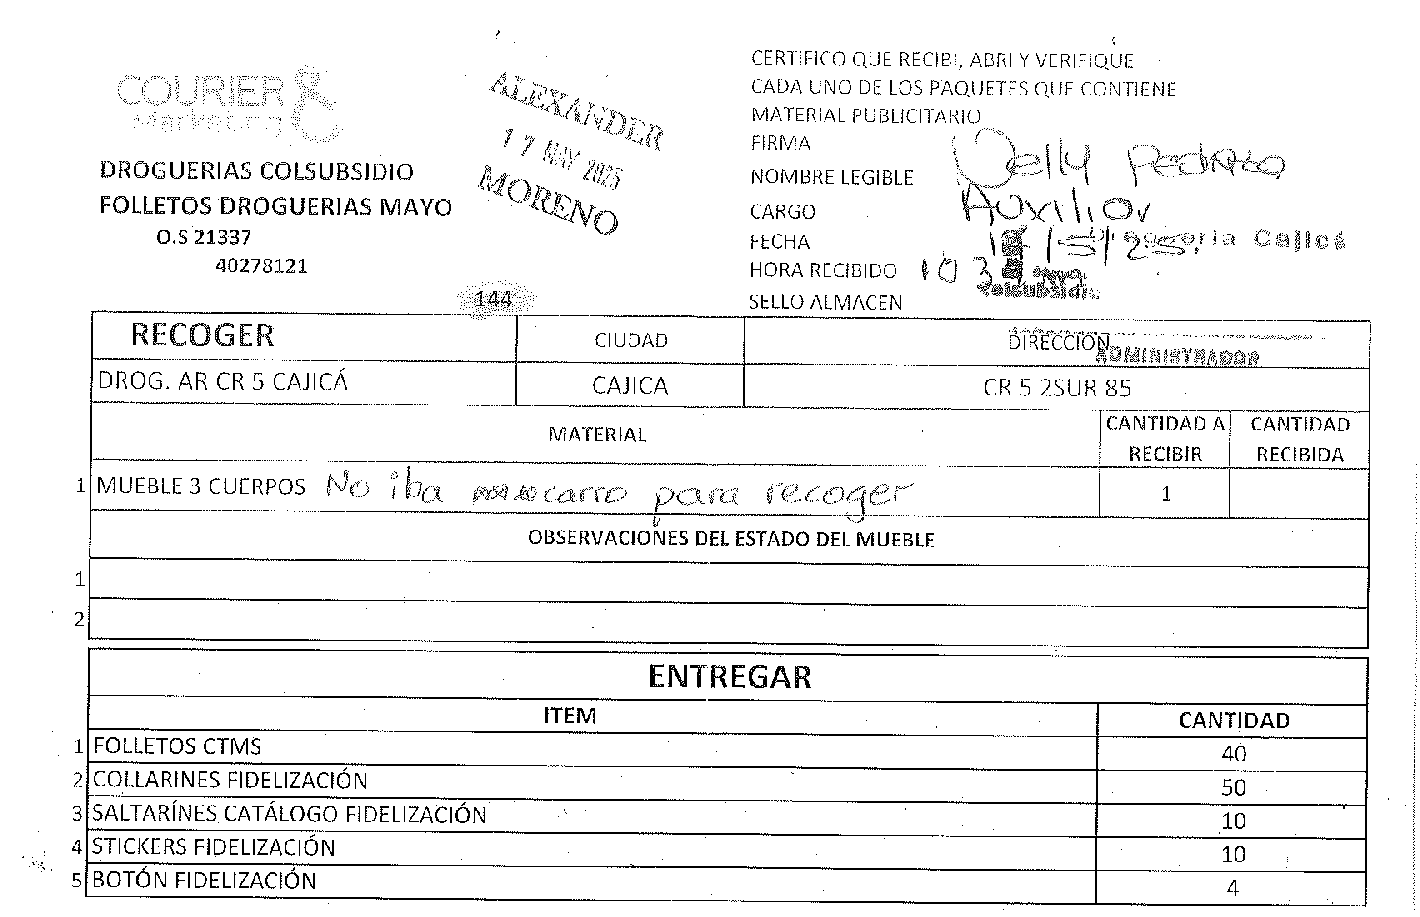 COURIER
Marketing
DROGUERIAS COLSUBSIDIO
FOLLETOS DROGUERIAS MAYO
O.S 21337
40278121
144
ALEXANDER
17 MAY 2025
MORENO
CERTIFICO QUE RECIBI, ABRI Y VERIFIQUE
CADA UNO DE LOS PAQUETES QUE CONTIENE
MATERIAL PUBLICITARIO
FIRMA
NOMBRE LEGIBLE
CARGO Auxiliar
FECHA
HORA RECIBIDO
SELLO ALMACEN
Cajicá
Colsubsidio
ADMINISTRADOR
RECOGER CIUDAD DIRECCION
DROG. AR CR 5 CAJICÁ CAJICA CR 5 2SUR 85
MATERIAL CANTIDAD A RECIBIR CANTIDAD RECIBIDA
1 MUEBLE 3 CUERPOS No iba carro para recoger 1
OBSERVACIONES DEL ESTADO DEL MUEBLE
1
2
ENTREGAR
ITEM CANTIDAD
1 FOLLETOS CTMS 40
2 COLLARINES FIDELIZACIÓN 50
3 SALTARÍNES CATÁLOGO FIDELIZACIÓN 10
4 STICKERS FIDELIZACIÓN 10
5 BOTÓN FIDELIZACIÓN 4